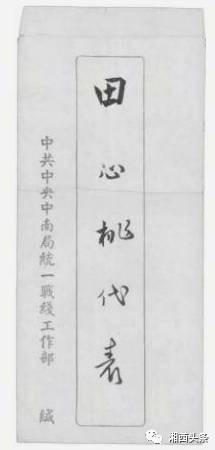 田心桃代表
中共中央中南局統一戰綫工作部 缄
湘西头条